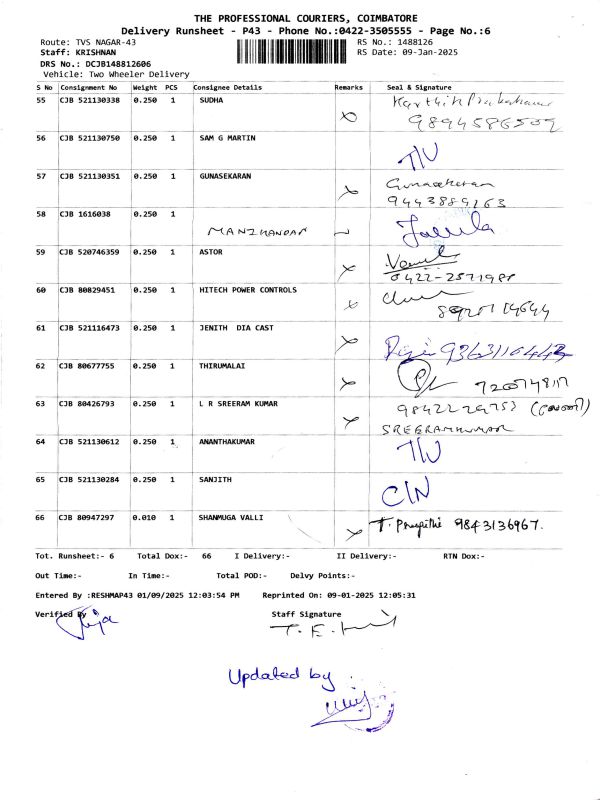 THE PROFESSIONAL COURIERS, COIMBATORE
Delivery Runsheet - P43 - Phone No.:0422-3505555 - Page No.:6
Route: TVS NAGAR-43 RS No.: 1488126
Staff: KRISHNAN RS Date: 09-Jan-2025
DRS No.: DCJB148812606
Vehicle: Two Wheeler Delivery
S No Consignment No Weight PCS Consignee Details Remarks Seal & Signature
55 CJB 521130338 0.250 1 SUDHA
9894586509
56 CJB 521130750 0.250 1 SAM G MARTIN
57 CJB 521130351 0.250 1 GUNASEKARAN Gunasekaran
9443889163
58 CJB 1616038 0.250 1 MANIKANDAN
59 CJB 520746359 0.250 1 ASTOR
60 CJB 80829451 0.250 1 HITECH POWER CONTROLS
61 CJB 521116473 0.250 1 JENITH DIA CAST
62 CJB 80677755 0.250 1 THIRUMALAI
63 CJB 80426793 0.250 1 L R SREERAM KUMAR
SREERAMKUMAR
64 CJB 521130612 0.250 1 ANANTHAKUMAR
65 CJB 521130284 0.250 1 SANJITH
66 CJB 80947297 0.010 1 SHANMUGA VALLI 9843136967.
Tot. Runsheet:- 6 Total Dox:- 66 I Delivery:- II Delivery:- RTN Dox:-
Out Time:- In Time:- Total POD:- Delvy Points:-
Entered By :RESHMAP43 01/09/2025 12:03:54 PM Reprinted On: 09-01-2025 12:05:31
Verified By Staff Signature
Updated by